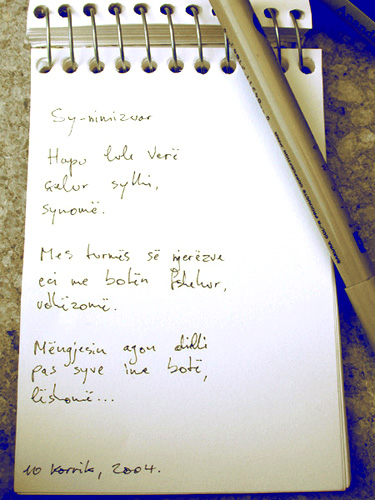 Sy-nimizuar
Hapu lule verë
çelur sythi,
synomë.
Mes turmës së njerëzve
eci me botën fshehur,
udhëzomë.
Mëngjesin agon dielli
pas syve ime botë,
lëshomë...
10 korrik, 2004.